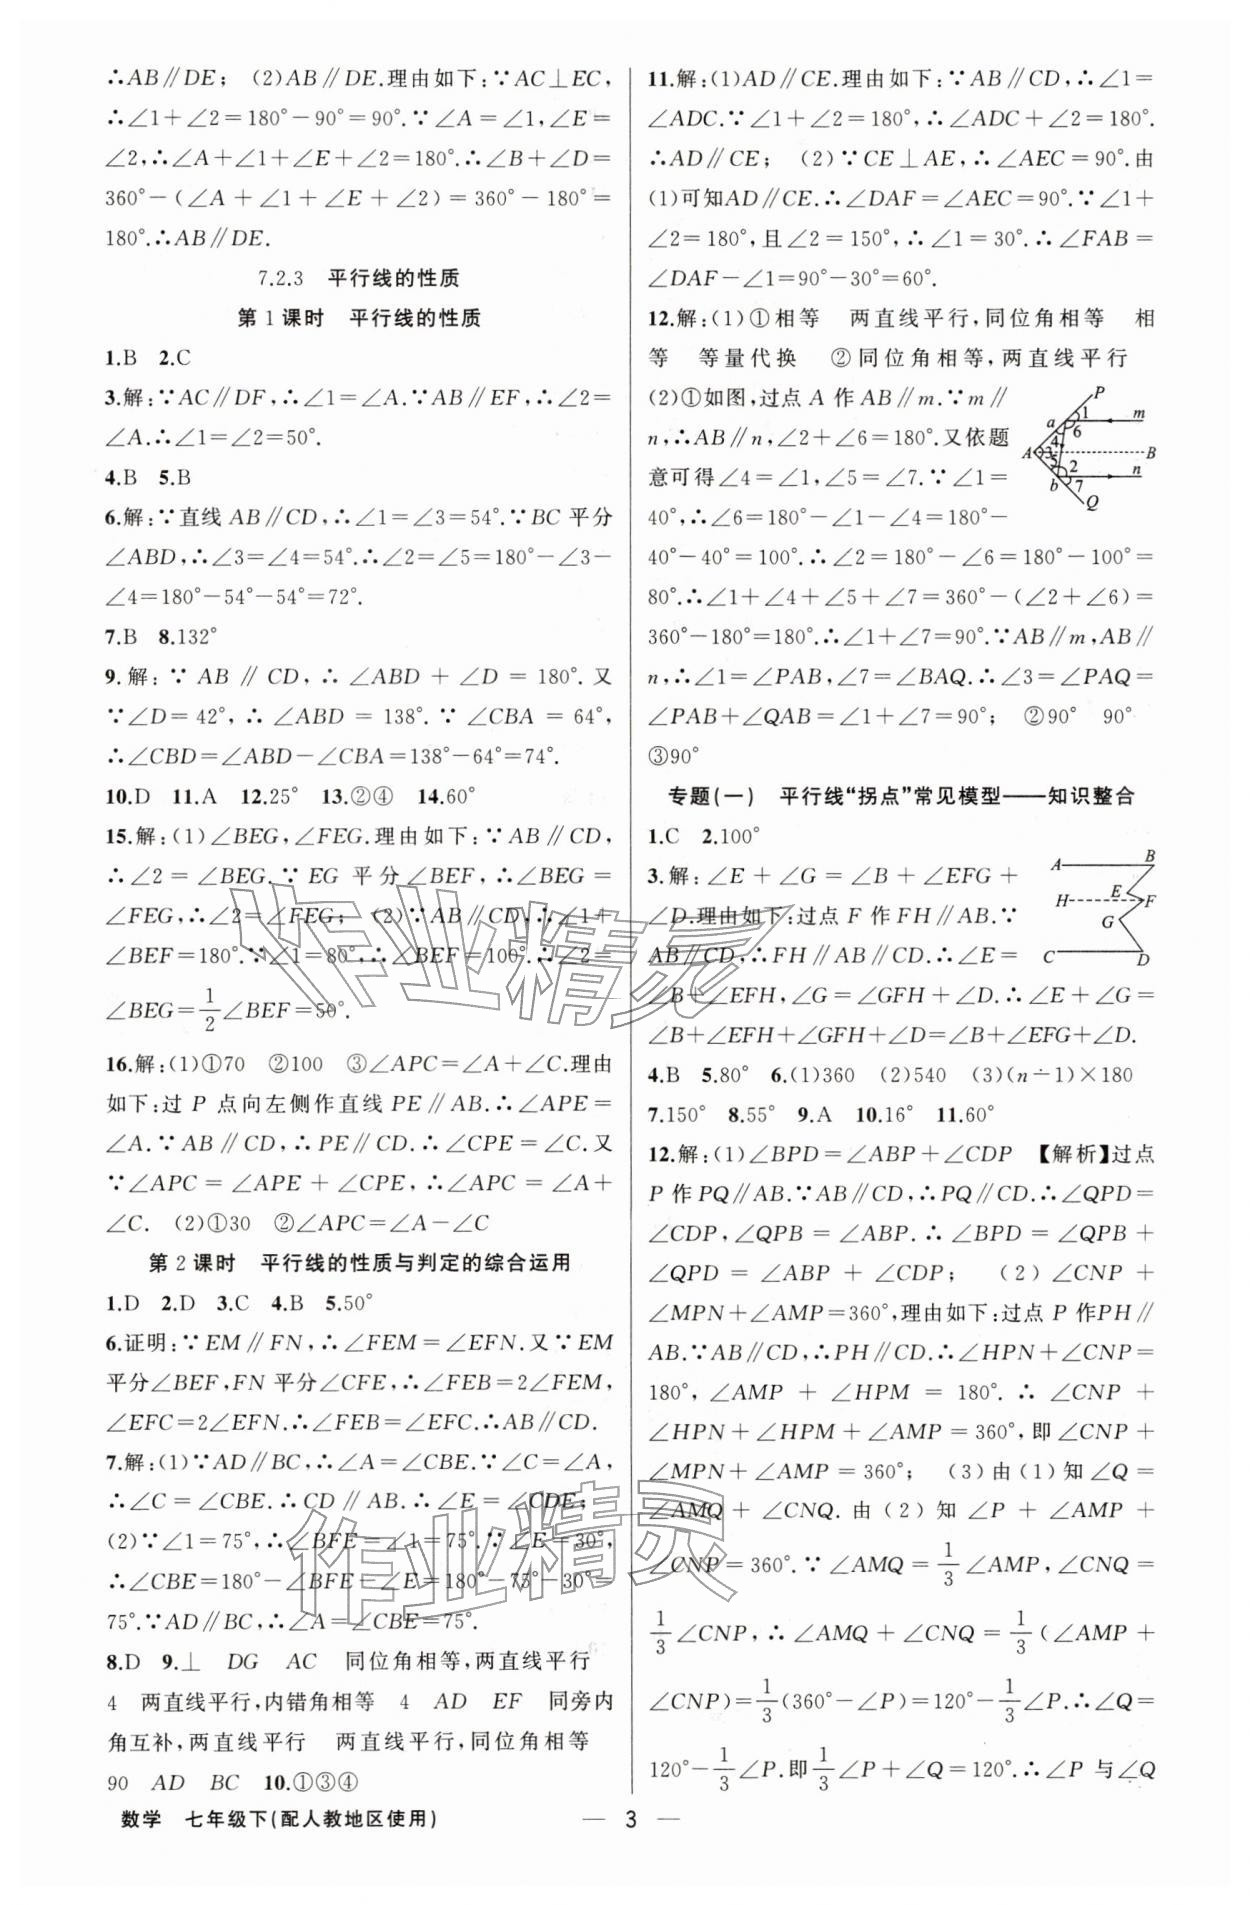 ∴AB∥DE； (2)AB∥DE.理由如下：∵AC⊥EC，
∴∠1+∠2=180°-90°=90°.∵∠A=∠1，∠E=
∠2，∴∠A+∠1+∠E+∠2=180°.∴∠B+∠D=
360°-(∠A+∠1+∠E+∠2)=360°-180°=
180°.∴AB∥DE.
7.2.3 平行线的性质
第1课时 平行线的性质
1.B 2.C
3.解：∵AC∥DF，∴∠1=∠A.∵AB∥EF，∴∠2=
∠A.∴∠1=∠2=50°.
4.B 5.B
6.解：∵直线AB∥CD，∴∠1=∠3=54°.∵BC平分
∠ABD，∴∠3=∠4=54°.∴∠2=∠5=180°-∠3-
∠4=180°-54°-54°=72°.
7.B 8.132°
9.解：∵AB∥CD，∴∠ABD+∠D=180°.又
∵∠D=42°，∴∠ABD=138°.∵∠CBA=64°，
∴∠CBD=∠ABD-∠CBA=138°-64°=74°.
10.D 11.A 12.25° 13.②④ 14.60°
15.解：(1)∠BEG，∠FEG.理由如下：∵AB∥CD，
∴∠2=∠BEG.∵EG平分∠BEF，∴∠BEG=
∠FEG，∴∠2=∠FEG； (2)∵AB∥CD，∴∠1+
∠BEF=180°.∵∠1=80°，∴∠BEF=100°.∴∠2=
∠BEG=1/2∠BEF=50°.
16.解：(1)①70 ②100 ③∠APC=∠A+∠C.理由
如下：过P点向左侧作直线PE∥AB.∴∠APE=
∠A.∵AB∥CD，∴PE∥CD.∴∠CPE=∠C.又
∵∠APC=∠APE+∠CPE，∴∠APC=∠A+
∠C. (2)①30 ②∠APC=∠A-∠C
第2课时 平行线的性质与判定的综合运用
1.D 2.D 3.C 4.B 5.50°
6.证明：∵EM∥FN，∴∠FEM=∠EFN.又∵EM
平分∠BEF，FN平分∠CFE，∴∠FEB=2∠FEM，
∠EFC=2∠EFN.∴∠FEB=∠EFC.∴AB∥CD.
7.解：(1)∵AD∥BC，∴∠A=∠CBE.∵∠C=∠A，
∴∠C=∠CBE.∴CD∥AB.∴∠E=∠CDE；
(2)∵∠1=75°，∴∠BFE=∠1=75°.∵∠E=30°，
∴∠CBE=180°-∠BFE-∠E=180°-75°-30°=
75°.∵AD∥BC，∴∠A=∠CBE=75°.
8.D 9.⊥ DG AC 同位角相等，两直线平行
4 两直线平行，内错角相等 4 AD EF 同旁内
角互补，两直线平行 两直线平行，同位角相等
90 AD BC 10.①③④
11.解：(1)AD∥CE.理由如下：∵AB∥CD，∴∠1=
∠ADC.∵∠1+∠2=180°，∴∠ADC+∠2=180°.
∴AD∥CE； (2)∵CE⊥AE，∴∠AEC=90°.由
(1)可知AD∥CE.∴∠DAF=∠AEC=90°.∵∠1+
∠2=180°，且∠2=150°，∴∠1=30°.∴∠FAB=
∠DAF-∠1=90°-30°=60°.
12.解：(1)①相等 两直线平行，同位角相等 相
等 等量代换 ②同位角相等，两直线平行
(2)①如图，过点A作AB∥m.∵m∥
n，∴AB∥n，∠2+∠6=180°.又依题
意可得∠4=∠1，∠5=∠7.∵∠1=
40°，∴∠6=180°-∠1-∠4=180°-
P
a 1 m
6
4
A 3 B
5
2 n
b 7
Q
40°-40°=100°.∴∠2=180°-∠6=180°-100°=
80°.∴∠1+∠4+∠5+∠7=360°-(∠2+∠6)=
360°-180°=180°.∴∠1+∠7=90°.∵AB∥m，AB∥
n，∴∠1=∠PAB，∠7=∠BAQ.∴∠3=∠PAQ=
∠PAB+∠QAB=∠1+∠7=90°； ②90° 90°
③90°
专题(一) 平行线“拐点”常见模型——知识整合
1.C 2.100°
3.解：∠E+∠G=∠B+∠EFG+
∠D.理由如下：过点F作FH∥AB.∵
AB∥CD，∴FH∥AB∥CD.∴∠E=
A B
E
H F
G
C D
∠B+∠EFH，∠G=∠GFH+∠D.∴∠E+∠G=
∠B+∠EFH+∠GFH+∠D=∠B+∠EFG+∠D.
4.B 5.80° 6.(1)360 (2)540 (3)(n-1)×180
7.150° 8.55° 9.A 10.16° 11.60°
12.解：(1)∠BPD=∠ABP+∠CDP 【解析】过点
P作PQ∥AB.∵AB∥CD，∴PQ∥CD.∴∠QPD=
∠CDP，∠QPB=∠ABP.∴∠BPD=∠QPB+
∠QPD=∠ABP+∠CDP； (2)∠CNP+
∠MPN+∠AMP=360°，理由如下：过点P作PH∥
AB.∵AB∥CD，∴PH∥CD.∴∠HPN+∠CNP=
180°，∠AMP+∠HPM=180°.∴∠CNP+
∠HPN+∠HPM+∠AMP=360°，即∠CNP+
∠MPN+∠AMP=360°； (3)由(1)知∠Q=
∠AMQ+∠CNQ.由(2)知∠P+∠AMP+
∠CNP=360°.∵∠AMQ=1/3∠AMP，∠CNQ=
1/3∠CNP，∴∠AMQ+∠CNQ=1/3(∠AMP+
∠CNP)=1/3(360°-∠P)=120°-1/3∠P.∴∠Q=
120°-1/3∠P.即1/3∠P+∠Q=120°.∴∠P与∠Q
数学 七年级下(配人教地区使用)
— 3 —
作业精灵
作业精灵